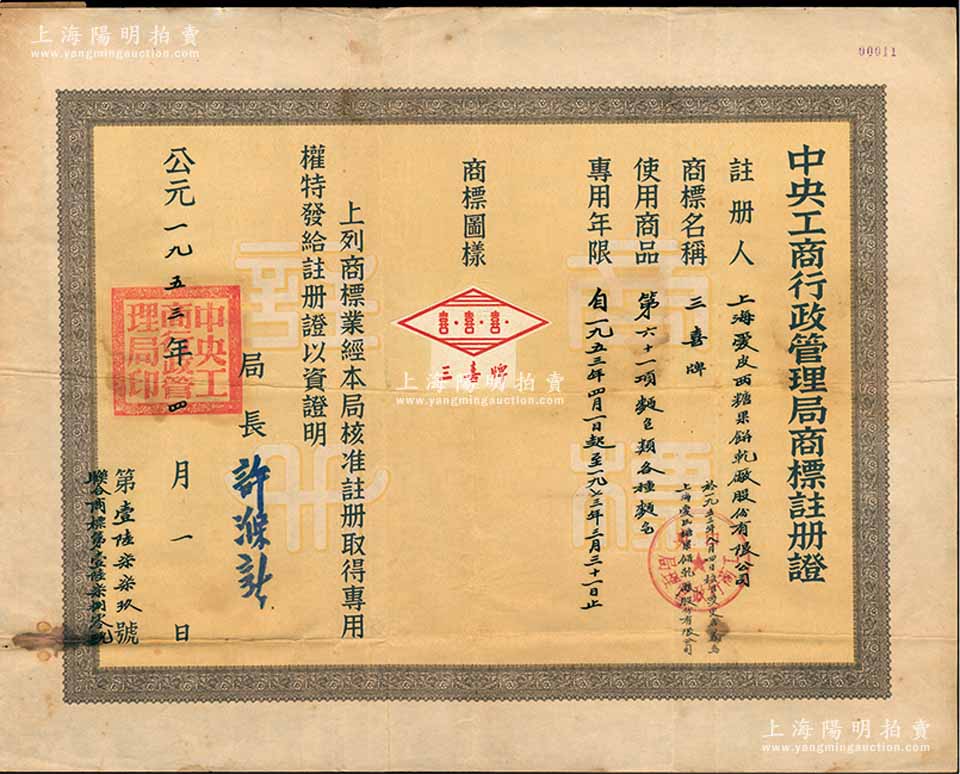 上海陽明拍賣
www.yangmingauction.com
00011
中央工商行政管理局商標註册證
註册人 上海愛皮西糖果餅乾廠股份有限公司
商標名稱 三喜牌
使用商品 第六十一項麵包類各種麵包
專用年限 自一九五三年四月一日起至一九七三年三月三十一日止
商標圖樣
喜·喜·喜·
三喜牌
上海陽明拍賣
www.yangmingauction.com
上列商標業經本局核准註册取得專用
權特發給註册證以資證明
局長 許滌新
公元一九五三年四月一日
中央工
商行政管
理局印
第壹陸柒柒玖號
聯合商標第壹陸柒捌零號
商標
註册
上海陽明拍賣
www.yangmingauction.com